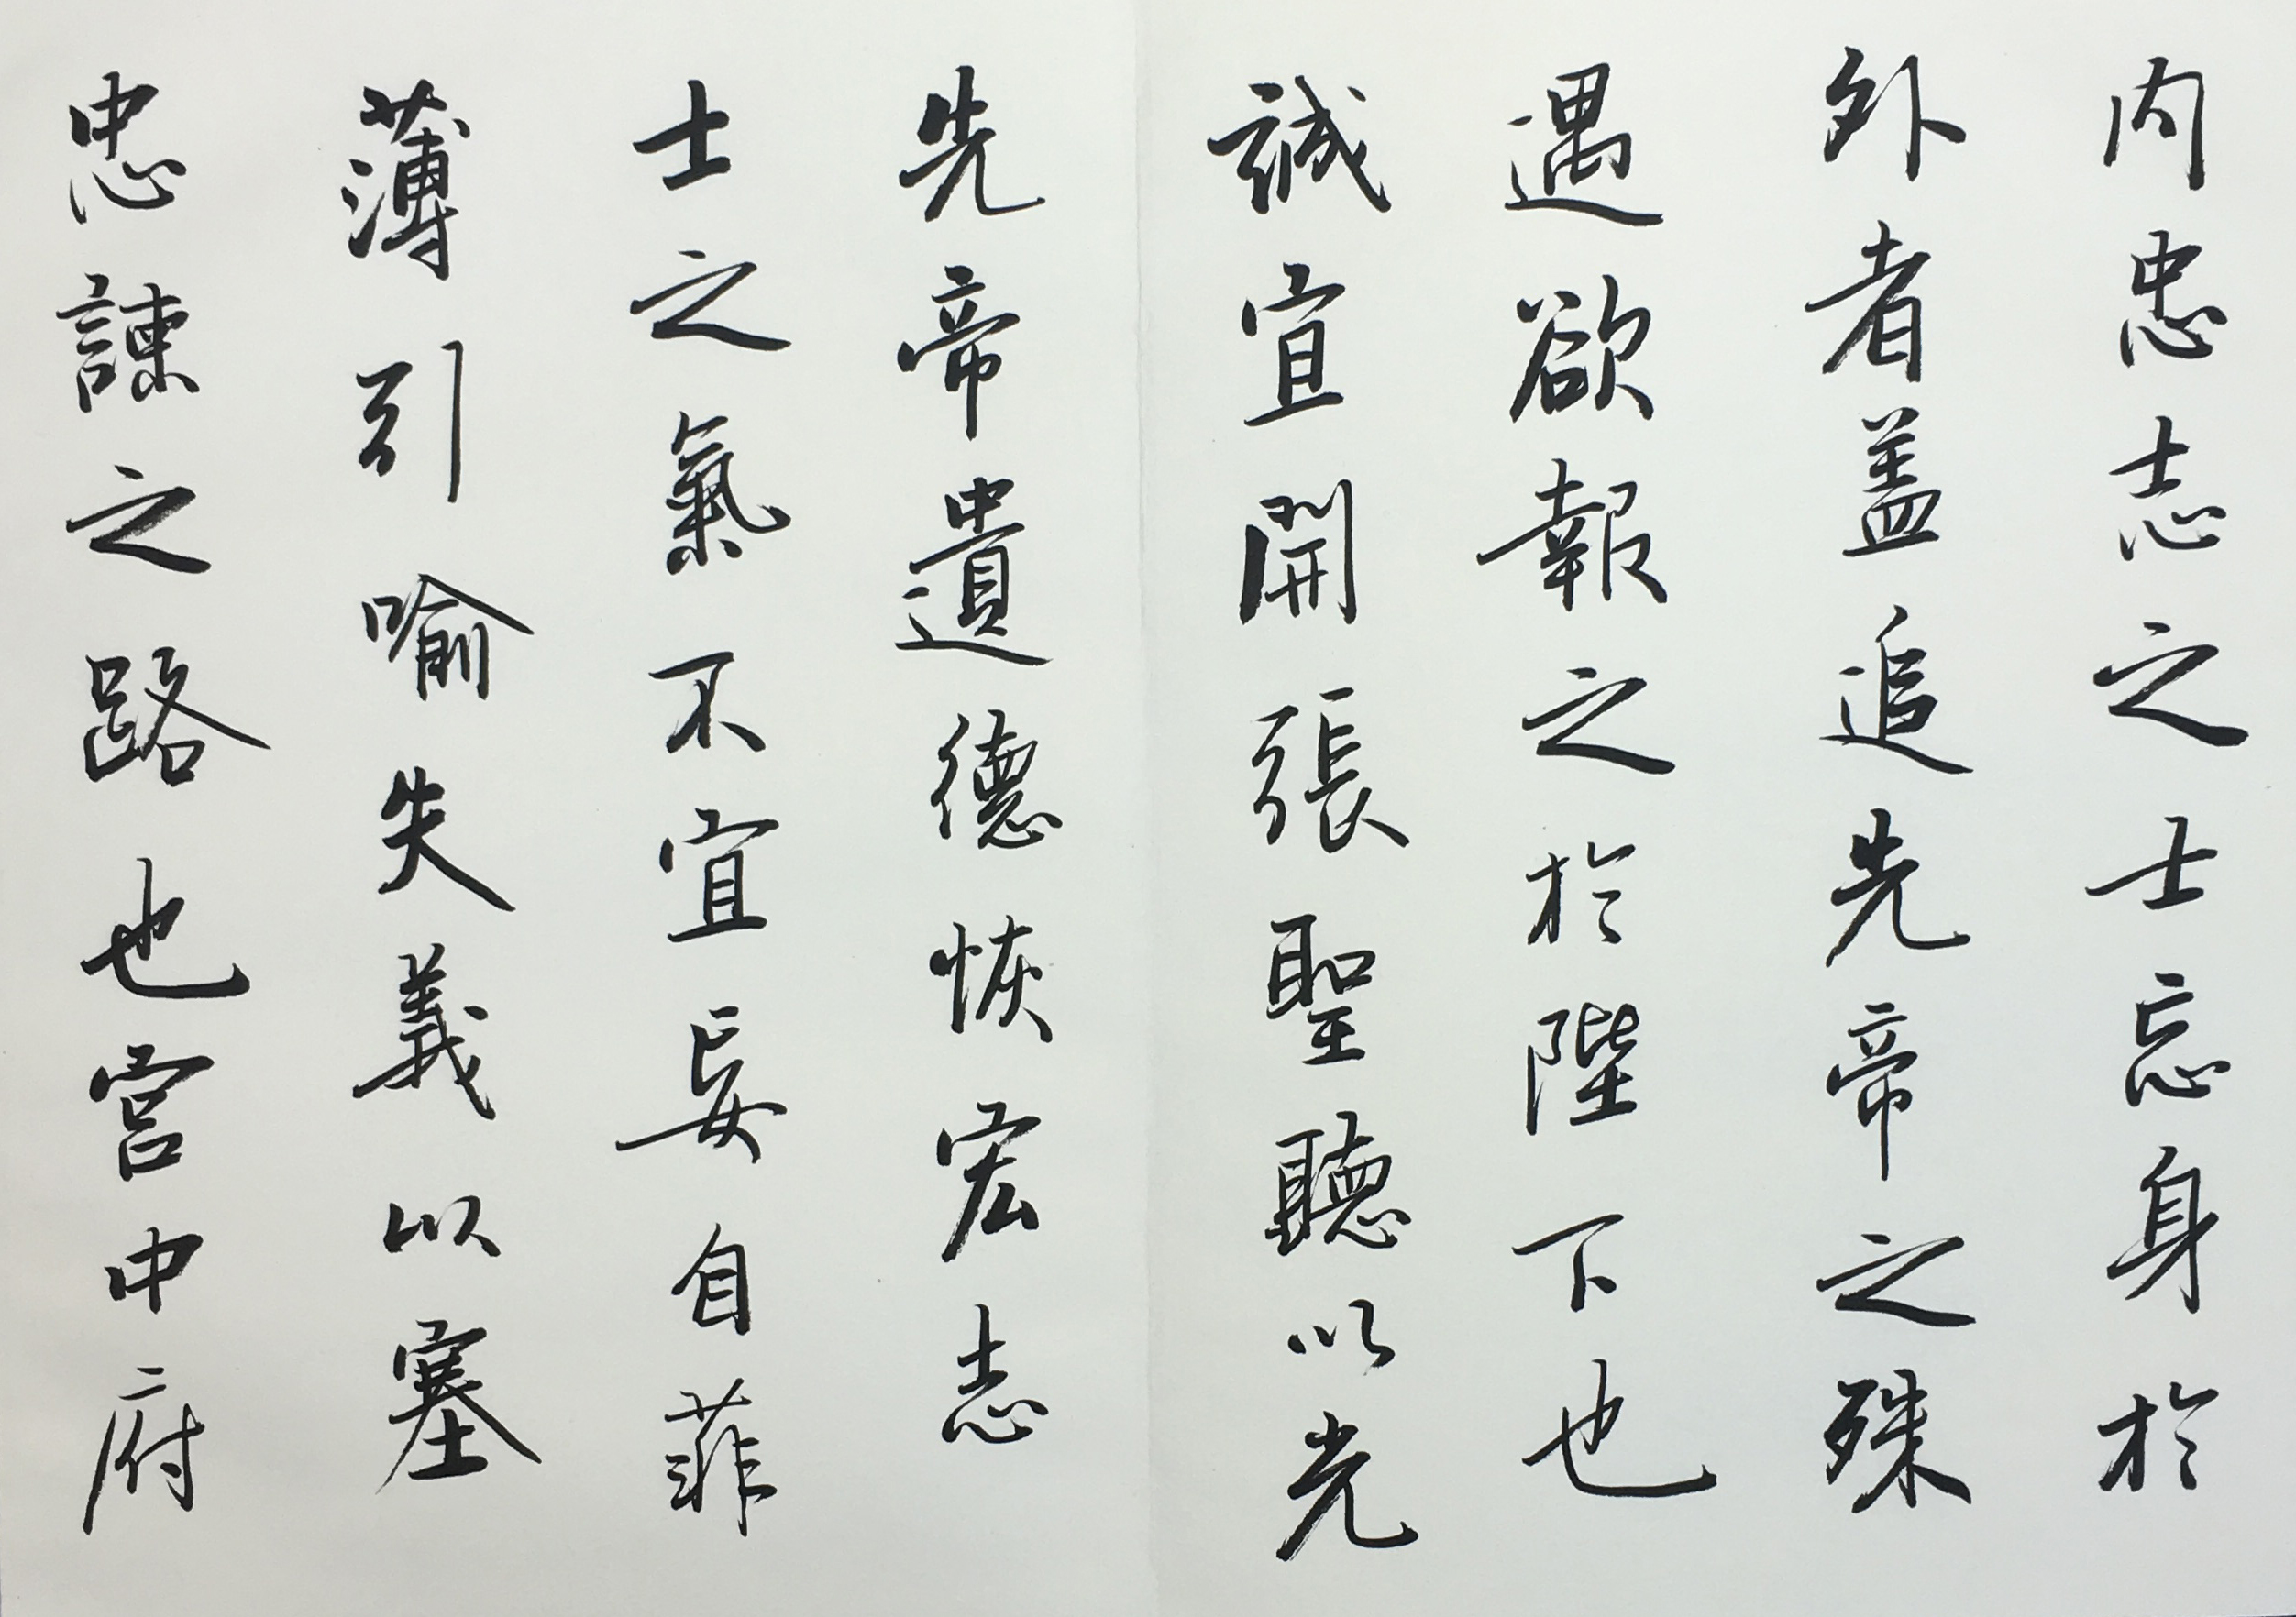 内忠志之士忘身於
外者盖追先帝之殊
遇欲報之於陛下也
誠宜開張聖聽以光
先帝遺德恢宏志
士之氣不宜妄自菲
薄引喻失義以塞
忠諫之路也宫中府